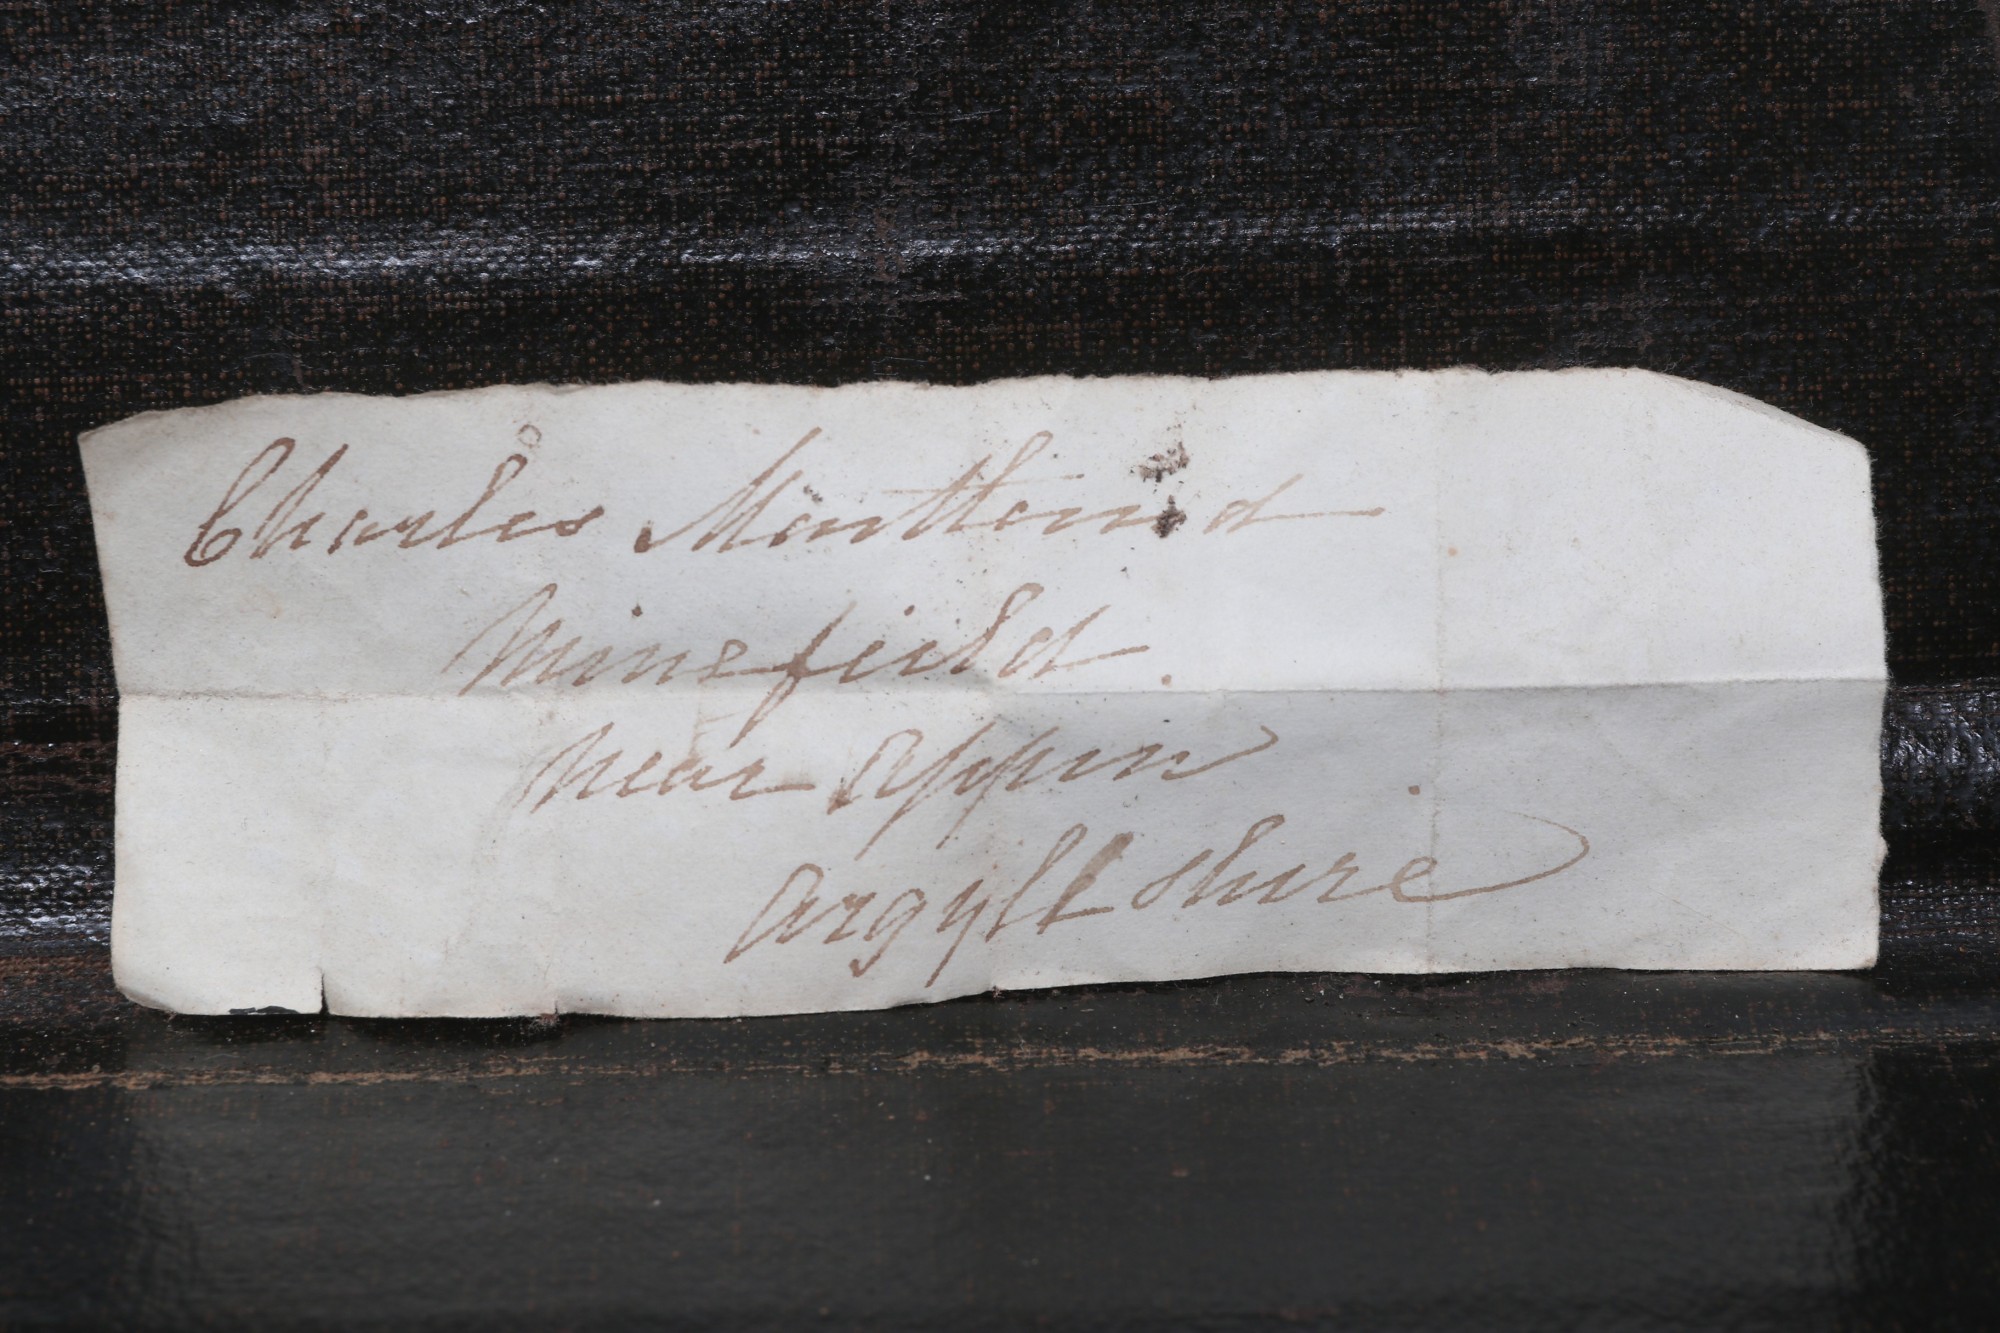 Charles
Minefield
near appin
argyll shire